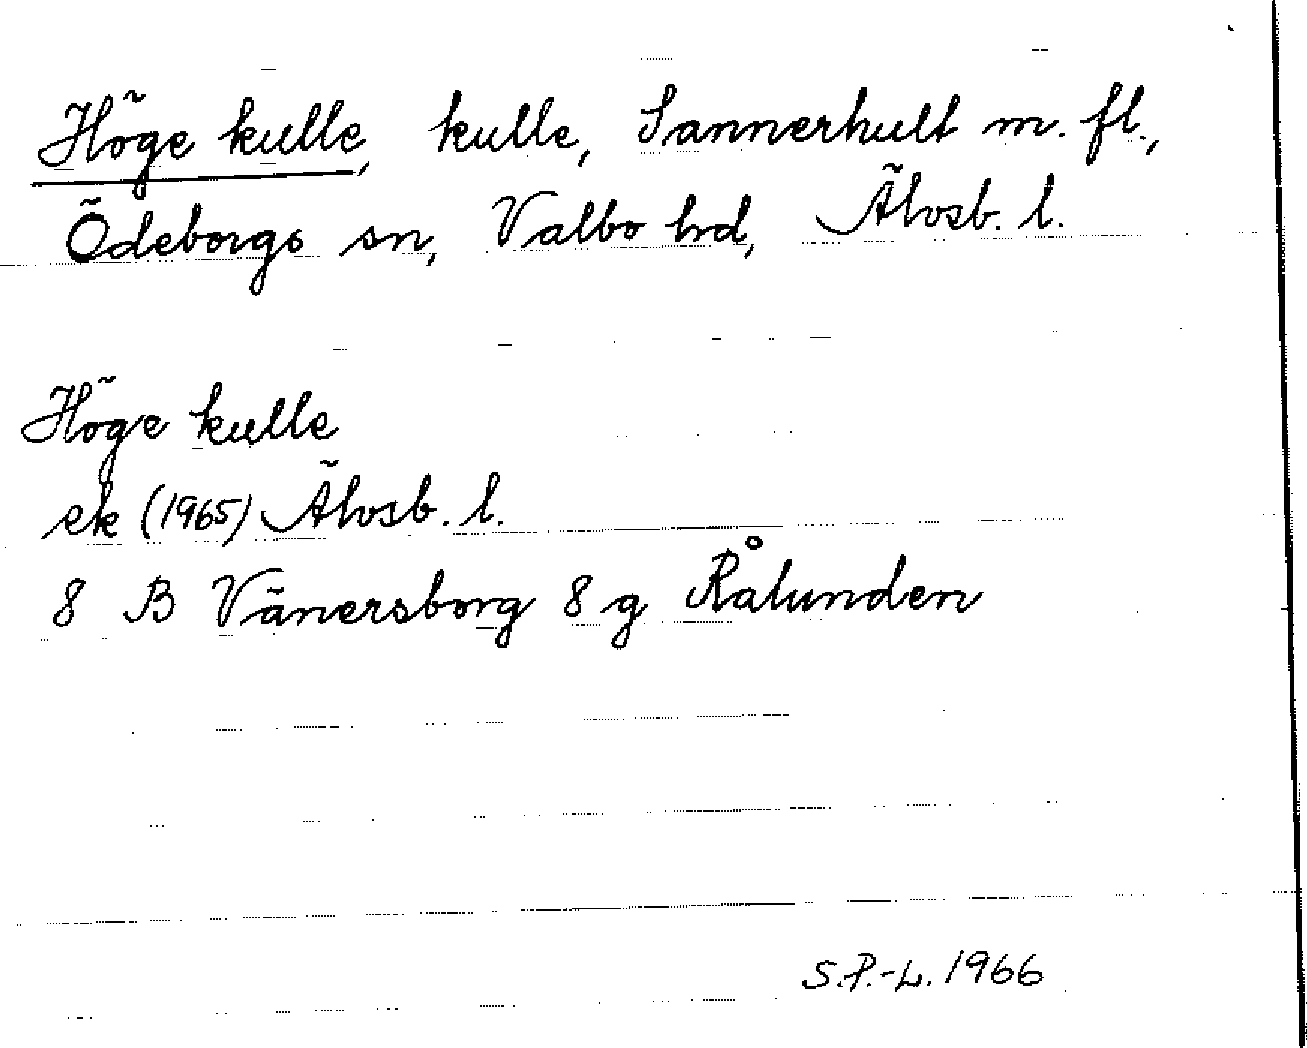 Höge kulle, kulle, Sannerhult m. fl.,
Ödeborgs sn, Valbo hd, Älvsb. l.
Höge kulle
ek (1965) Älvsb. l.
8 B Vänersborg 8 g Rålunden
S.P.-L. 1966